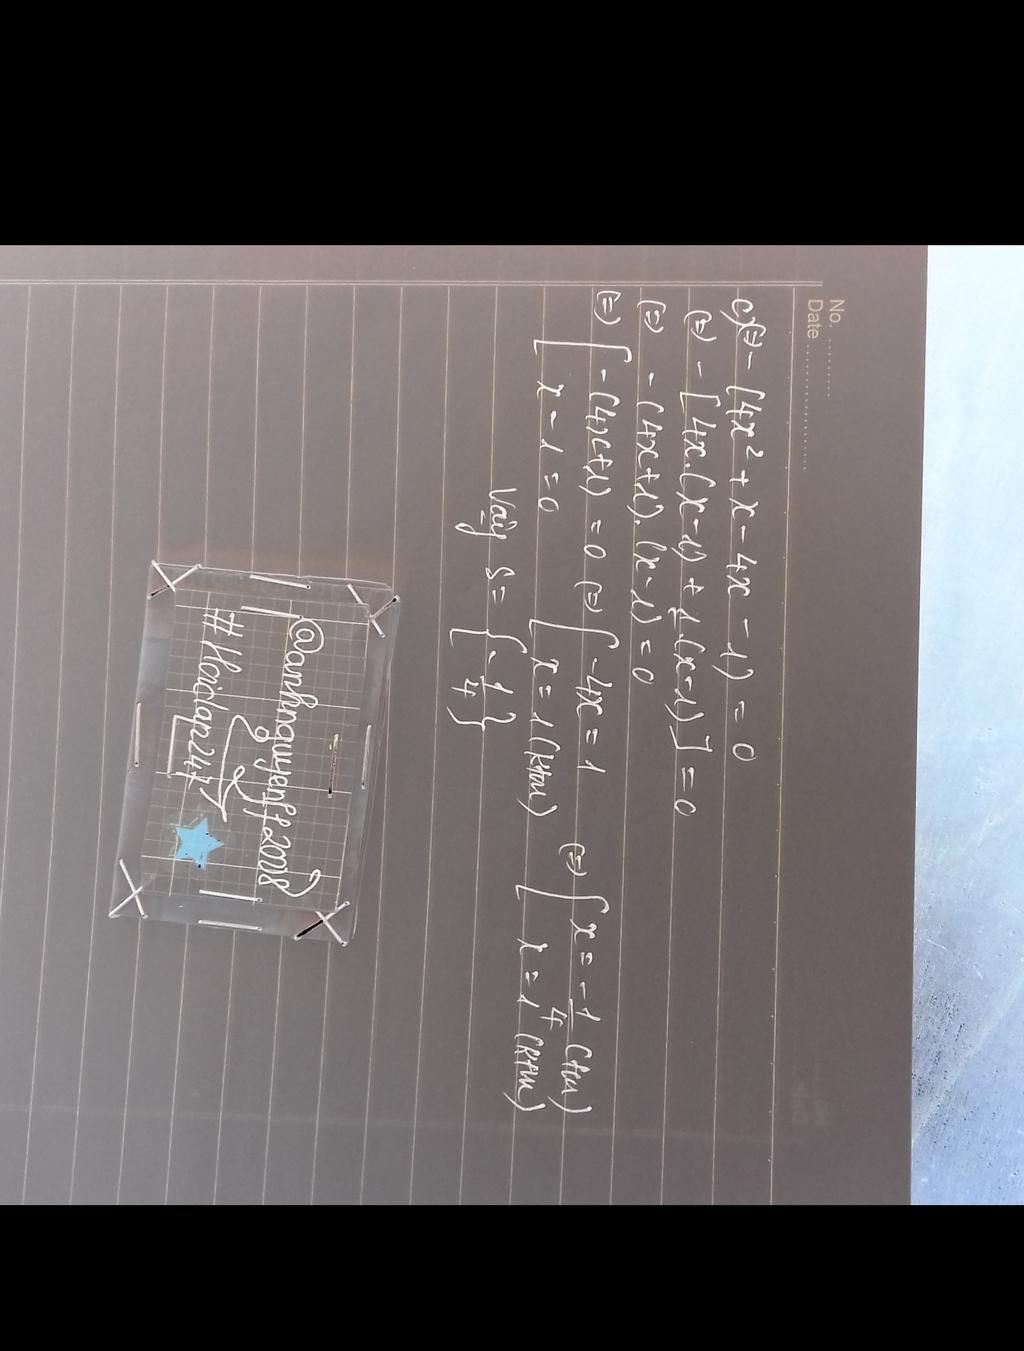 No. ..........
Date ....................
c) (=) - [4x² + x - 4x - 1) = 0
(=) - [4x.(x-1) + 1.(x-1)] = 0
(=) - (4x+1).(x-1) = 0
(=) [ -(4x+1) = 0 (=) [ -4x = 1 (=) [ x = -1/4 (tm)
x - 1 = 0 x = 1 (ktm) x = 1 (ktm)
Vậy S = {-1/4}
@anhnguyenft2008
#Hoidap247